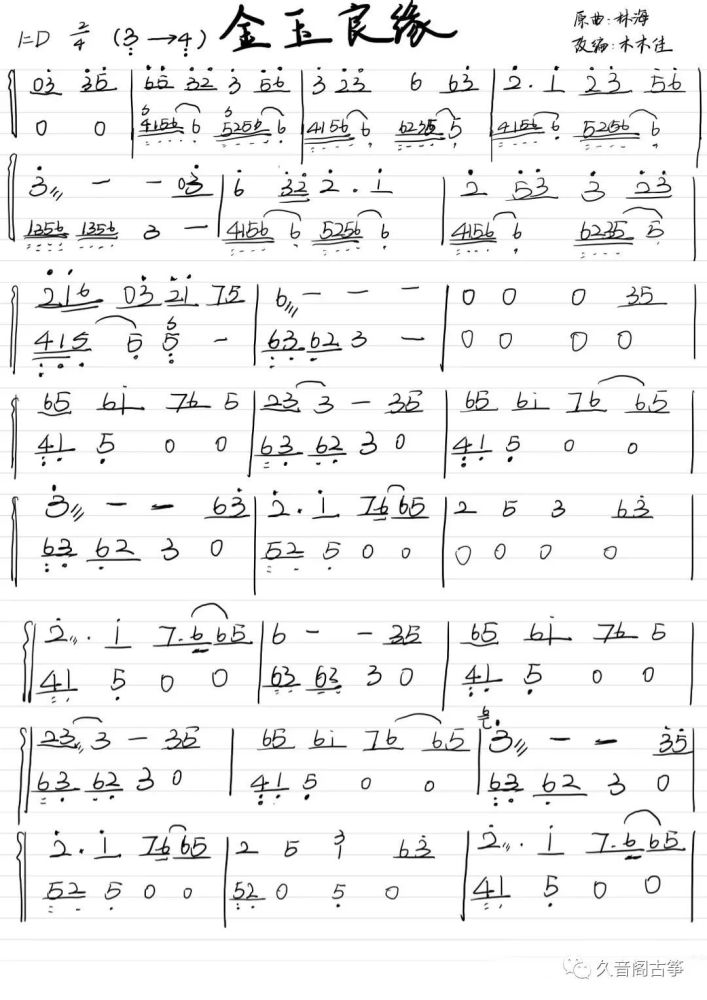 1=D 2/4 (3→4) 金玉良缘 原曲:林海
改编:木木佳
03 35 | 65 32 3 56 | 3 23 6 63 | 2. 1 23 56
0 0 | 4156 6 5256 6 | 4156 6 6235 5 | 4156 6 5256 6
3 - - 03 | 6 32 2. 1 | 2 53 3 23
1356 1356 3 - | 4156 6 5256 6 | 4156 6 6235 5
216 03 21 75 | 6 - - - | 0 0 0 35
415 5 5 - | 63 62 3 - | 0 0 0 0
65 61 76 5 | 23 3 - 35 | 65 61 76 65
41 5 0 0 | 63 62 3 0 | 41 5 0 0
3 - - 63 | 2. 1 76 65 | 2 5 3 63
63 62 3 0 | 52 5 0 0 | 0 0 0 0
2. 1 7.6 65 | 6 - - 35 | 65 61 76 5
41 5 0 0 | 63 63 3 0 | 41 5 0 0
23 3 - 35 | 65 61 76 65 | 3 - - 35
63 62 3 0 | 41 5 0 0 | 63 62 3 0
2. 1 76 65 | 2 5 3 1 63 | 2. 1 7.6 65
52 5 0 0 | 52 0 5 0 | 41 5 0 0
久音阁古筝